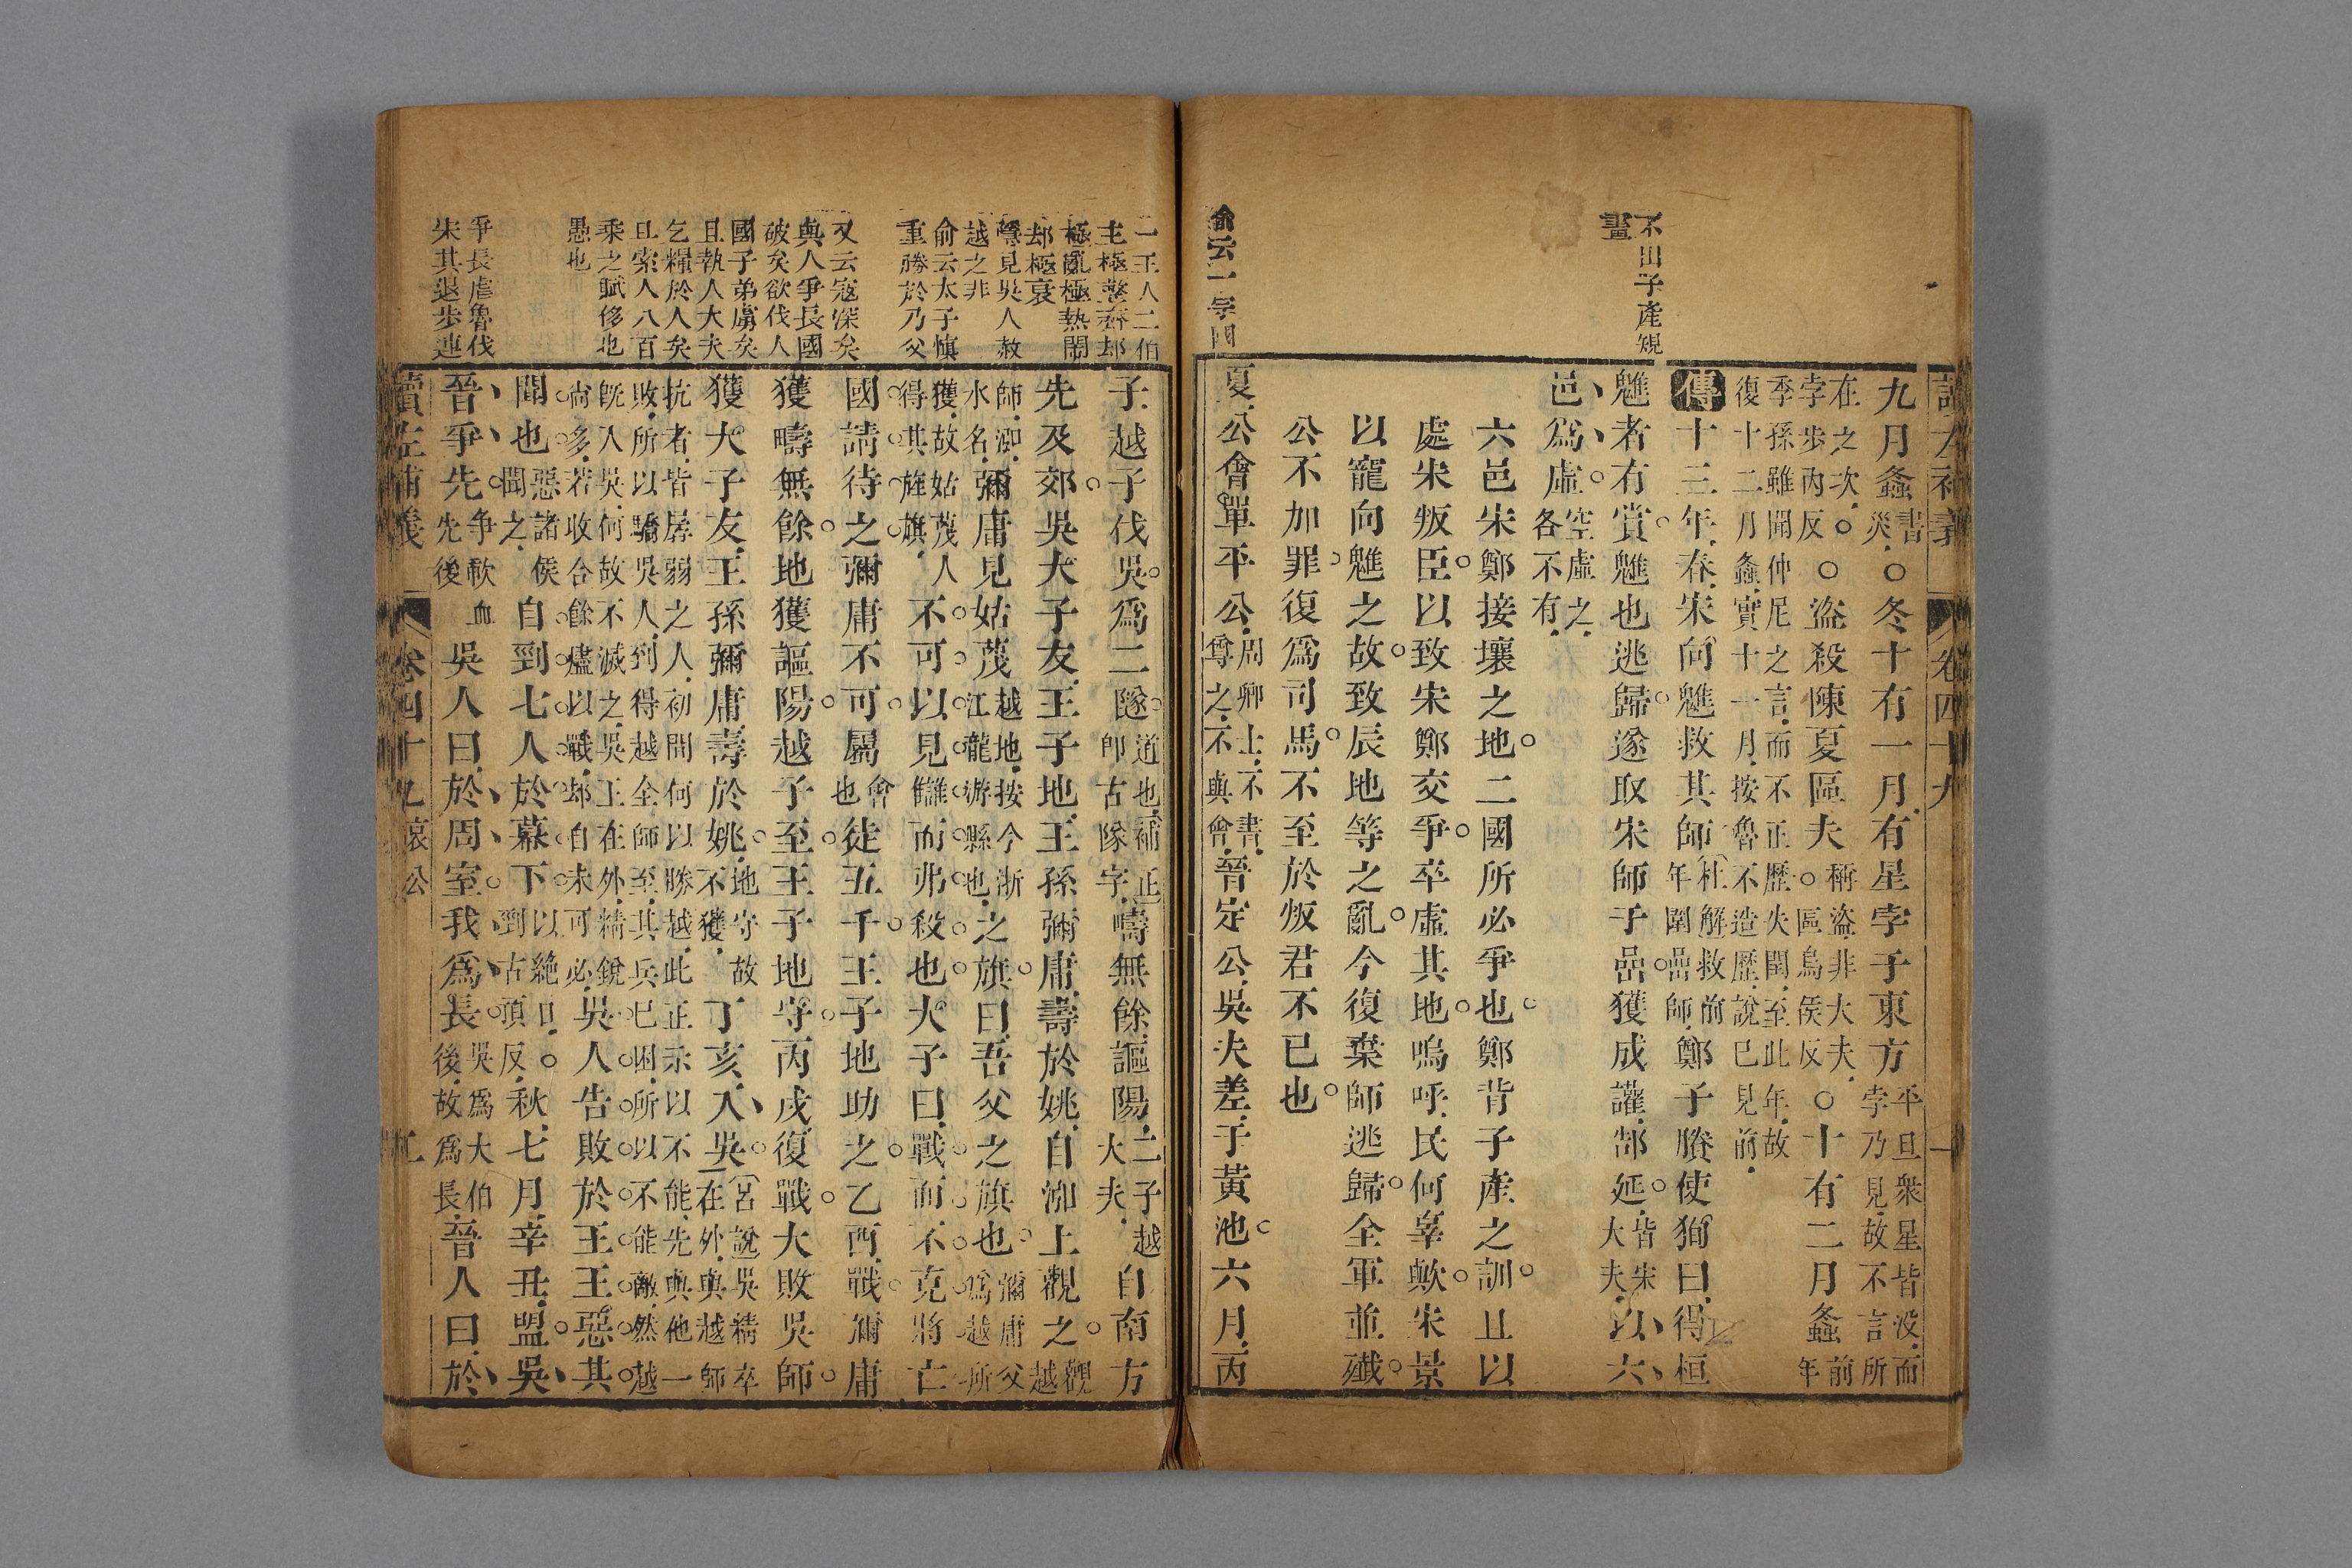 讀左補義 卷四十九
不出子產規
畫
俞云一宗國
九月螽書災○冬十有一月有星孛于東方平旦衆星皆没而孛乃見故不言所
在之次○孛步内反○盜殺陳夏區夫稱盜非大夫○區烏侯反○十有二月螽前年
季孫雖聞仲尼之言而不正歷失閏至此年故復十二月螽實十一月按魯不造歷說已見前
傳十三年春宋向魋救其師杜解救前年圍嵒師鄭子賸使狥曰得桓
魋者有賞魋也逃歸遂取宋師于嵒獲成讙郜延皆宋大夫以六
邑爲虛空虛之各不有
六邑宋鄭接壤之地二國所必爭也鄭背子產之訓且以
處宋叛臣以致宋鄭交爭卒虛其地嗚呼民何辜歟宋景
以寵向魋之故致辰地等之亂今復棄師逃歸全軍並殲
公不加罪復爲司馬不至於叛君不已也
夏公會單平公周卿士不書尊之不與會晉定公吳夫差于黃池六月丙
二王人二伯
主極整齊却
極亂極熱鬧
却極衰
見吳人敖
越之非
俞云太子愼
重勝於乃父
又云寇深矣
與人爭長國
破矣欲伐人
國子弟虜矣
且執人大夫
乞糧於人矣
且索人八百
乘之賦侈也
愚也
爭長虐魯伐
宋其退步連
子越子伐吳爲二隧道也補正卽古隊字疇無餘謳陽二子越大夫自南方
先及郊吳大子友王子地王孫彌庸壽於姚自泓上觀之觀越
師泓水名彌庸見姑蔑越地按今浙江龍游縣也之旗曰吾父之旗也彌庸父爲越所
獲故姑蔑人得其旌旗不可以見讎而弗殺也大子曰戰而不克將亡
國請待之彌庸不可屬會也徒五千王子地助之乙酉戰彌庸
獲疇無餘地獲謳陽越子至王子地守丙戌復戰大敗吳師
獲大子友王孫彌庸壽於姚地守故不獲丁亥入吳呂說吳精卒在外與越師
抗者皆孱弱之人初間何以勝越此正示以不能先與他一敗所以驕吳人到得越全師至其兵已困所以不能敵然越
旣入吳何故不滅之吳王在外精銳尚多若收合餘燼以戰却自未可必吳人告敗於王王惡其
聞也惡諸侯聞之自剄七人於幕下以絶口剄古頂反○秋七月辛丑盟吳
晉爭先爭歃血先後吳人曰於周室我爲長吳爲大伯後故爲長晉人曰於
讀左補義 卷四十九 哀公